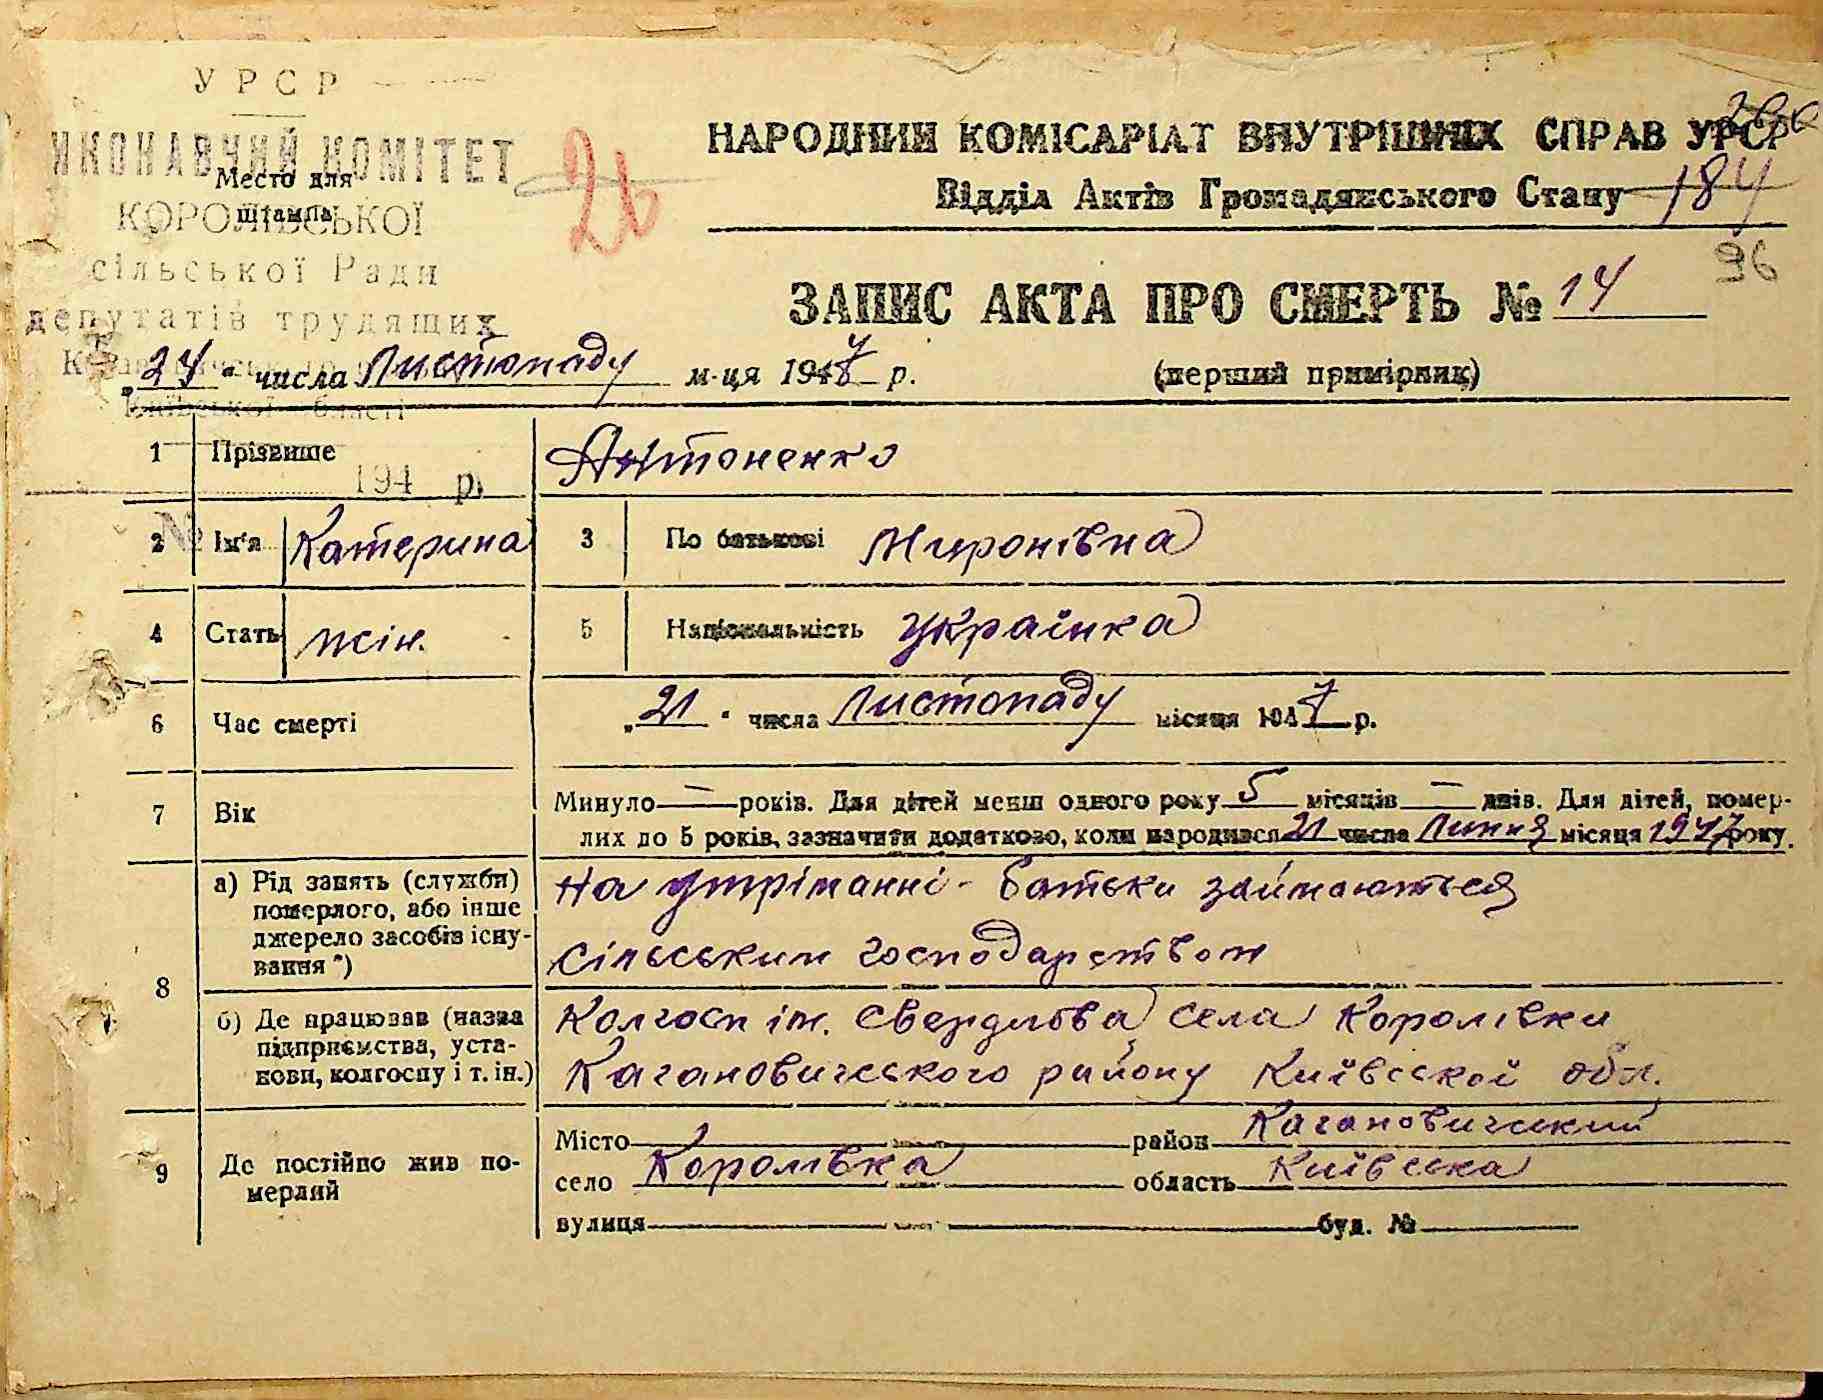 УРСР
ИКОНАВЧИЙ КОМІТЕТ
Место для
штампа
КОРОЛІВСЬКОЇ
сільської Ради
депутатів трудящих
Київської області
194 р.
№
26
НАРОДНИЙ КОМІСАРІАТ ВНУТРІШНІХ СПРАВ УРСР
Відділ Актів Громадянського Стану 184
96
ЗАПИС АКТА ПРО СМЕРТЬ № 14
„24“ числа Листопаду м-ця 1947 р. (перший примірник)
1 Прізвище Антоненко
2 Ім'я Катерина 3 По батькові Миронівна
4 Стать жін. 5 Національність Українка
6 Час смерті „21“ числа Листопаду місяця 1947 р.
7 Вік Минуло — років. Для дітей менш одного року 5 місяців — днів. Для дітей, помер-
лих до 5 років, зазначити додатково, коли народився 21 числа Липня місяця 1947 року.
8 а) Рід занять (служби) померлого, або інше джерело засобів існу-вання *) На утріманні - батьки займаються
сільським господарством
б) Де працював (назва підприємства, уста-нови, колгоспу і т. ін.) Колгосп ім. Свердлова села Королівки
Кагановичського району Київської обл.
9 Де постійно жив по-мерлий Місто район Кагановичський
село Королівка область Київська
вулиця буд. №